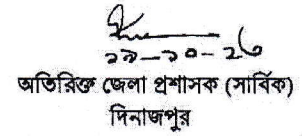 ২৯-১০-২৬
অতিরিক্ত জেলা প্রশাসক (সার্বিক)
দিনাজপুর